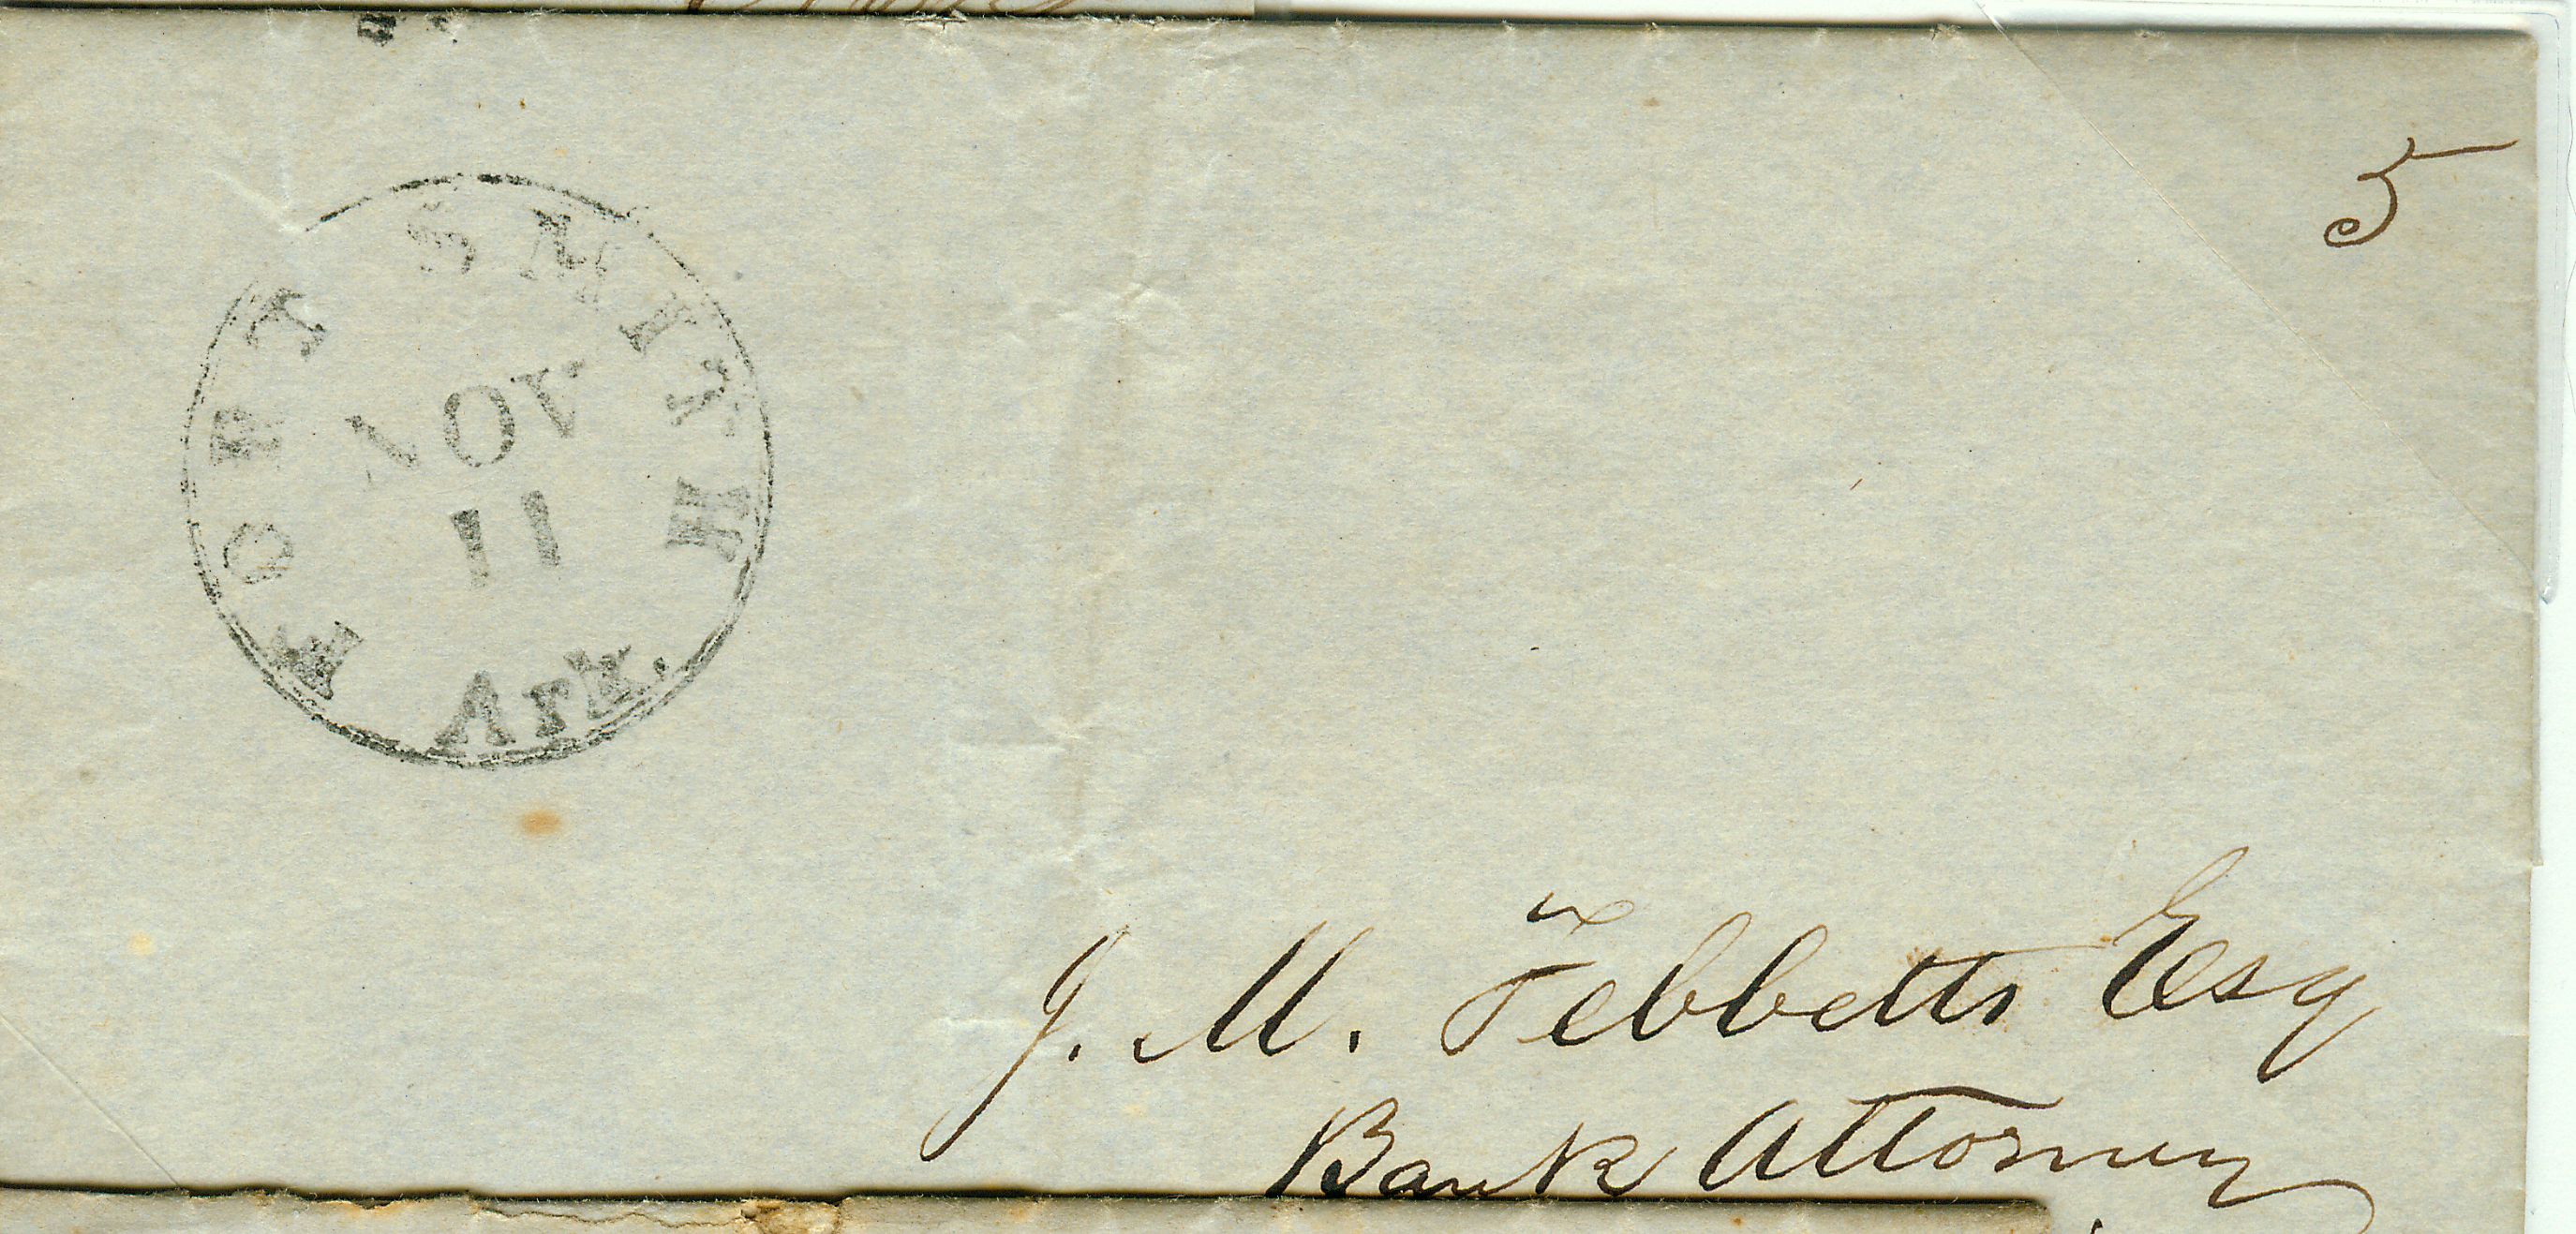 FORT SMITH
NOV
11
Ark.
5
J. M. Tebbetts Esq
Bank Attorney